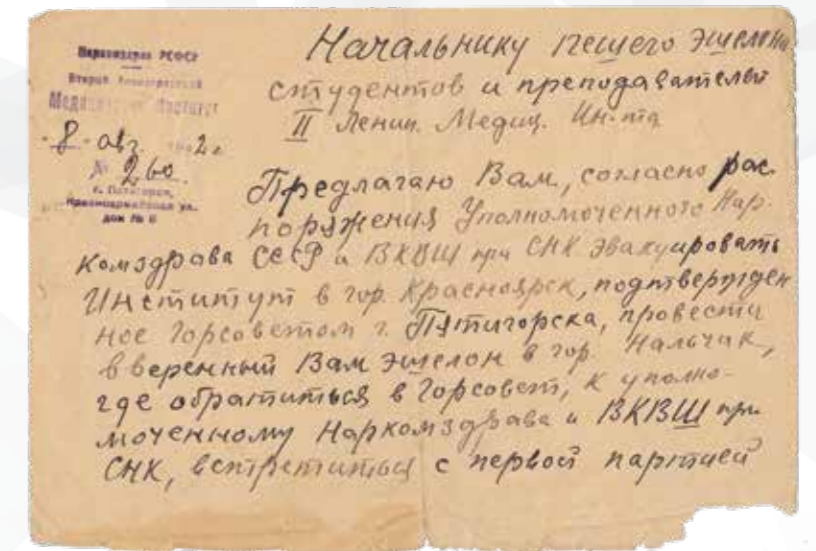 Наркомздрав РСФСР
Второй Ленинградский
Медицинский Институт
"8" авг. 1942 г.
№ 260
г. Пятигорск,
Красноармейская ул.
дом №
Начальнику пешего эшелона
студентов и преподавателей
II Ленин. Медиц. Ин-та
Предлагаю Вам, согласно рас
поряжения Уполномоченного Нар-
комздрава СССР и ВКВШ при СНК эвакуировать
Институт в гор. Красноярск, подтвержден
ное Горсоветом г. Пятигорска, провести
вверенный Вам эшелон в гор. Нальчик,
где обратиться в Горсовет, к уполно-
моченному Наркомздрава и ВКВШ при
СНК, встретиться с первой партией